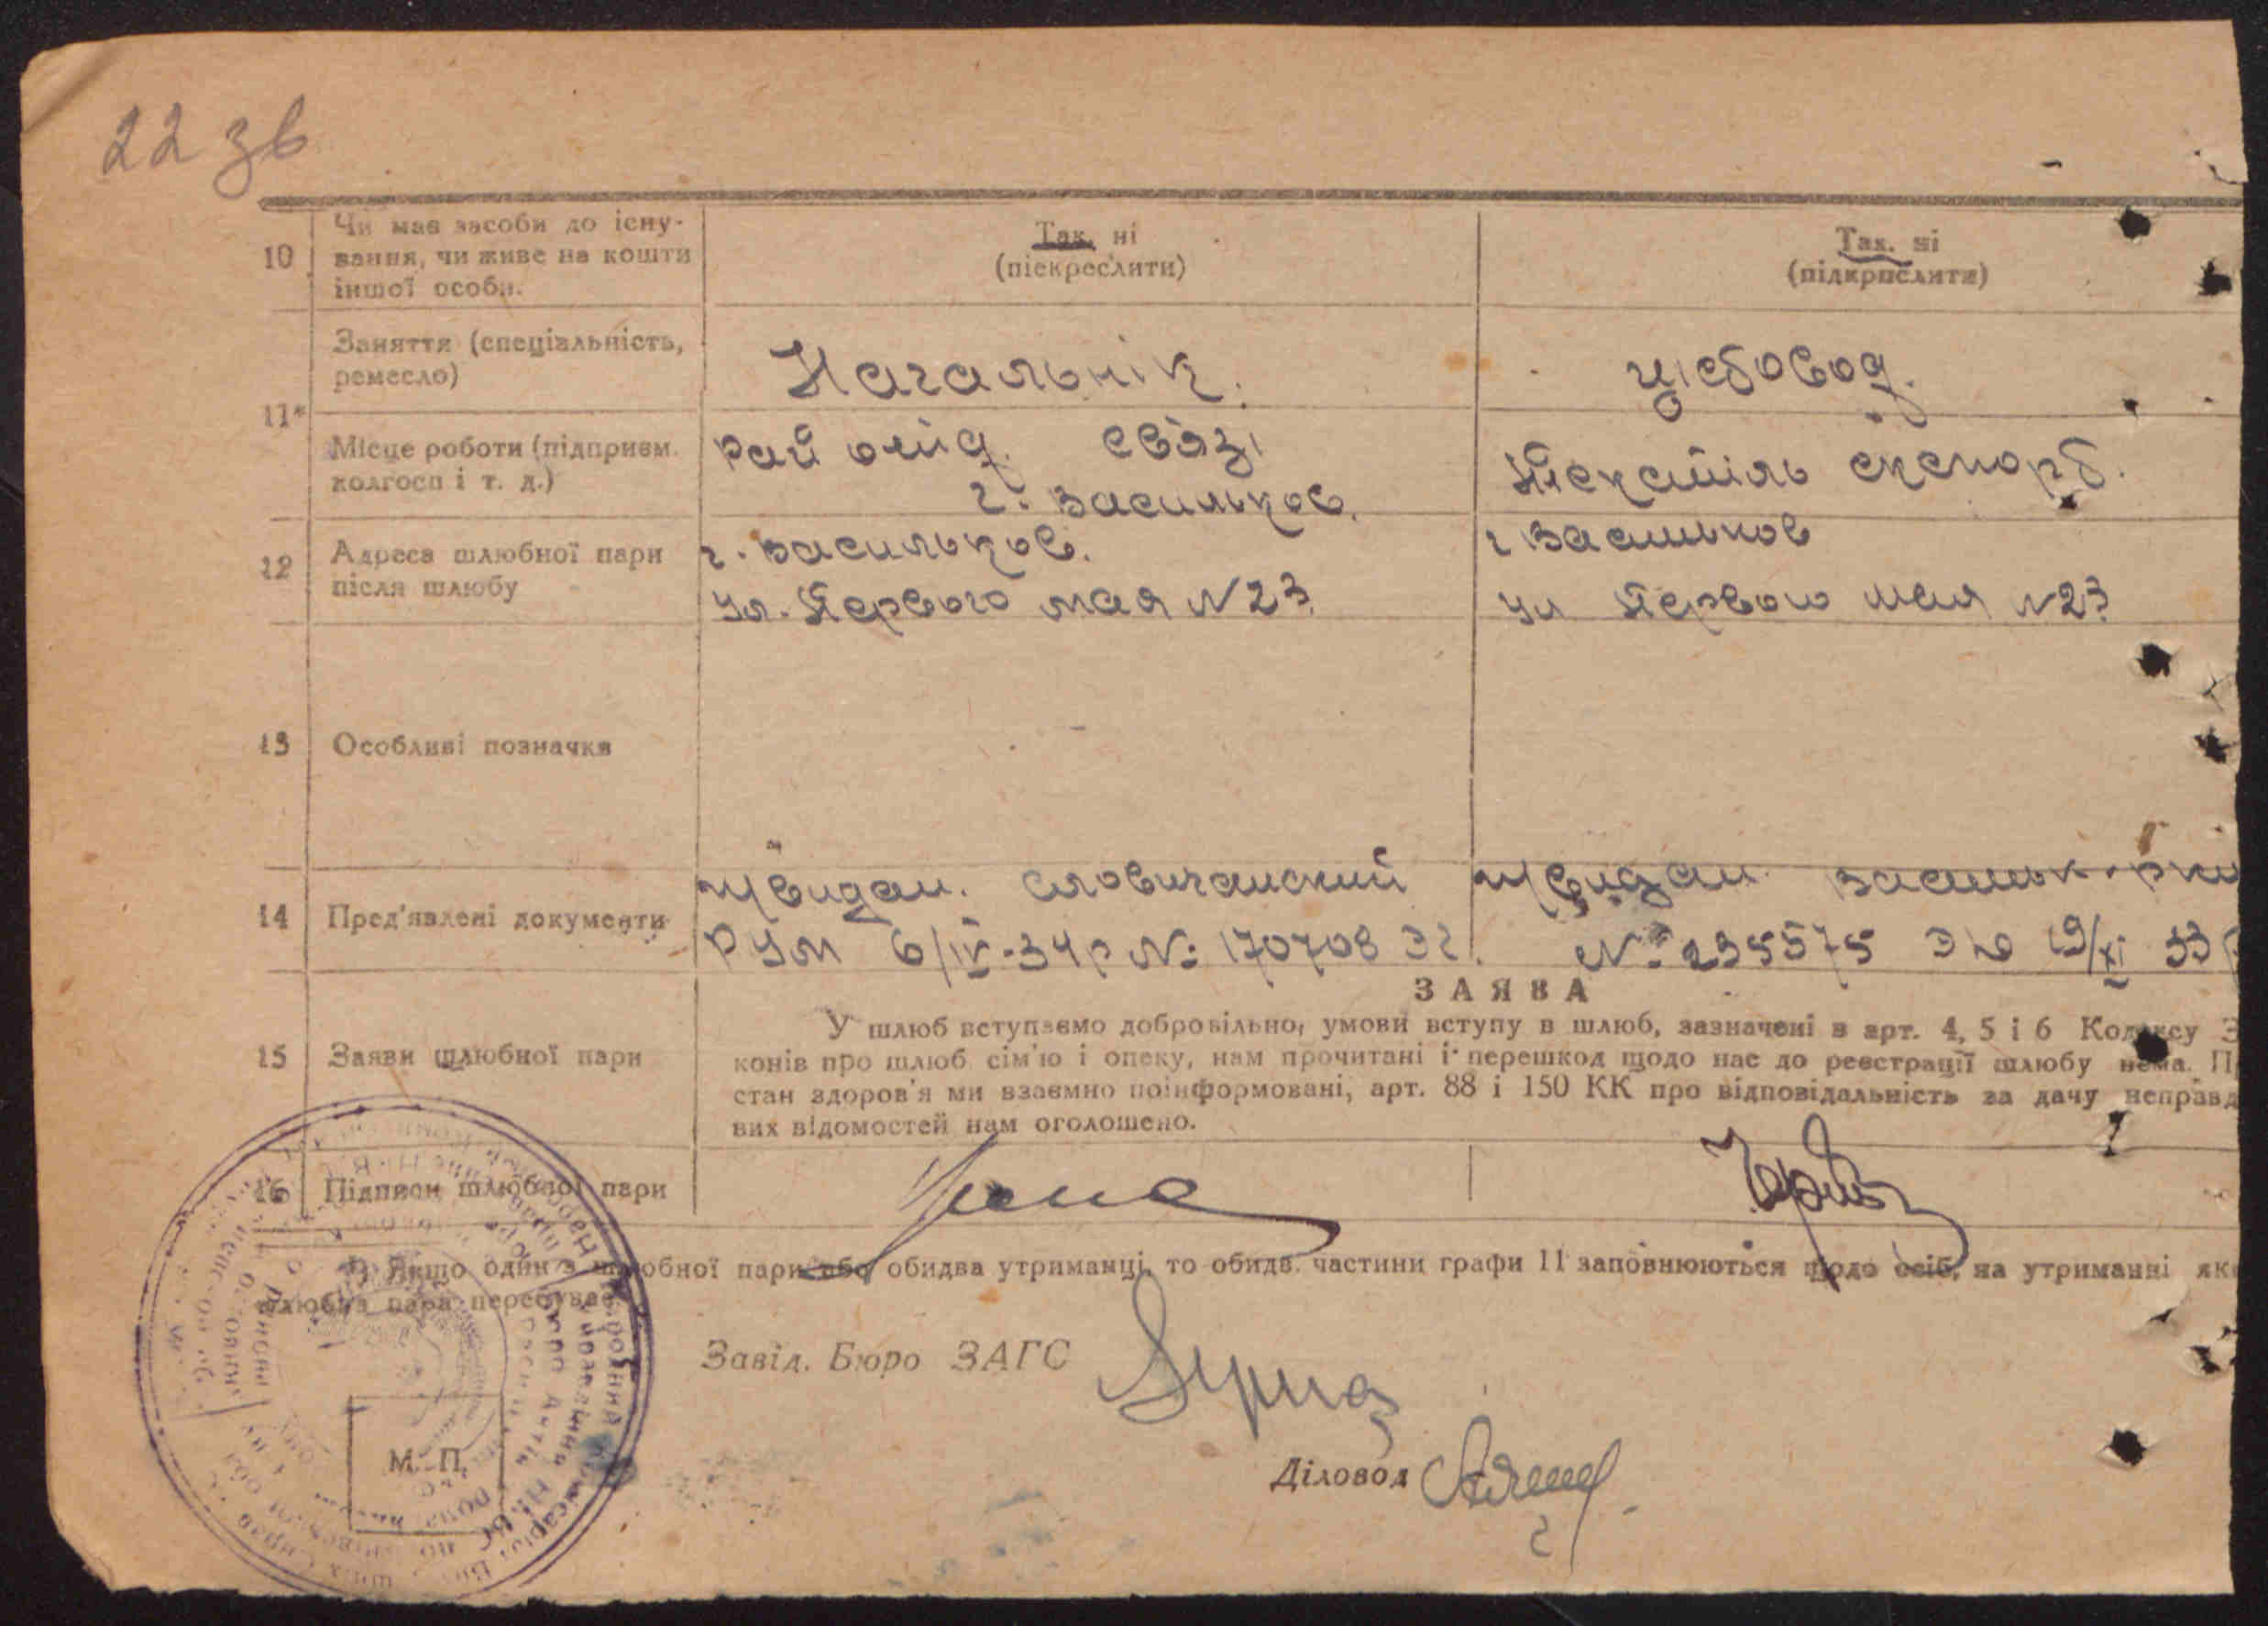 22 зв
10 Чи має засоби до існу-
вання, чи живе на кошти
іншої особи.
Так, ні
(піекреслити)
Так. ні
(підкрпслити)
11*
Заняття (спеціальність,
ремесло)
Начальнік.
Місце роботи (підприєм.
колгосп і т. д.)
Рай отд. связі
г. Васильков.
Текстіль експорт.
12 Адреса шлюбної пари
після шлюбу
г. Васильков.
ул. Первого мая N 23.
г Васильков
ул Первого мая N 23
13 Особливі позначки
14 Пред'явлені документи
Словичанский
РУМ 6/IV-34р №: 170708
№: 235575 19/XI 33
15 Заяви шлюбної пари
ЗАЯВА
У шлюб вступаємо добровільно, умови вступу в шлюб, зазначені в арт. 4, 5 і 6 Кодексу З
конів про шлюб сім'ю і опеку, нам прочитані і перешкод щодо нас до реєстрації шлюбу нема. П
стан здоров'я ми взаємно поінформовані, арт. 88 і 150 КК про відповідальність за дачу неправд
вих відомостей нам оголошено.
16 Підписи шлюбної пари
*) Якщо один з шлюбної пари або обидва утриманці, то обидв. частини графи 11 заповнюються щодо осіб, на утриманні яки
шлюбна пара перебуває.
Завід. Бюро ЗАГС
М. П.
Діловод